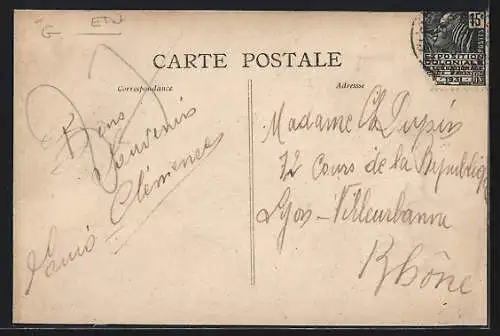 G EIV
CARTE POSTALE
Correspondance
Adresse
15
POSTES
EXPOSITION
COLONIALE
INTERNATIONALE
PARIS 1931
Bons
Souvenirs
Clémence
Louis
Madame Ch Dupin
72 Cours de la République
Lyon-Villeurbanne
Rhône